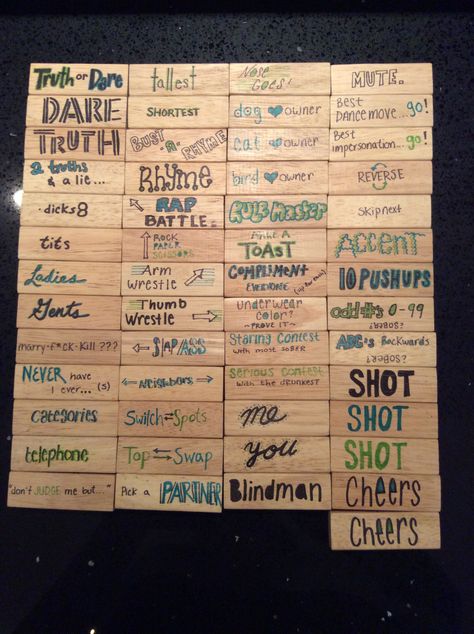 Truth or Dare
DARE
TRUTH
2 truths
& a lie...
·dicks 8
tits
Ladies
Gents
marry-f*ck-Kill ???
NEVER have
I ever... (s)
categories
telephone
"don't JUDGE me but..."
tallest
SHORTEST
BUST -A- RHYME
Rhyme
RAP
BATTLE
ROCK
PAPER
SCISSORS
Arm
Wrestle
Thumb
Wrestle
SLAP ASS
NEIGHBORS
Switch Spots
Top Swap
Pick a PARTNER
Nose
Goes!
dog owner
cat owner
bird owner
RULE Master
Make A
TOAST
COMPLIMENT
EVERYONE
underwear
color?
~PROVE IT~
Staring Contest
with most SOBER
Serious Contest
with the drunkest
me
you
Blindman
MUTE.
Best
DANCE move... go!
Best
impersonation... go!
REVERSE
Skip next
ACCENT
10 PUSHUPS
odd #'s 0-99
?SOBER?
ABC's Backwards
?SOBER?
SHOT
SHOT
SHOT
Cheers
Cheers